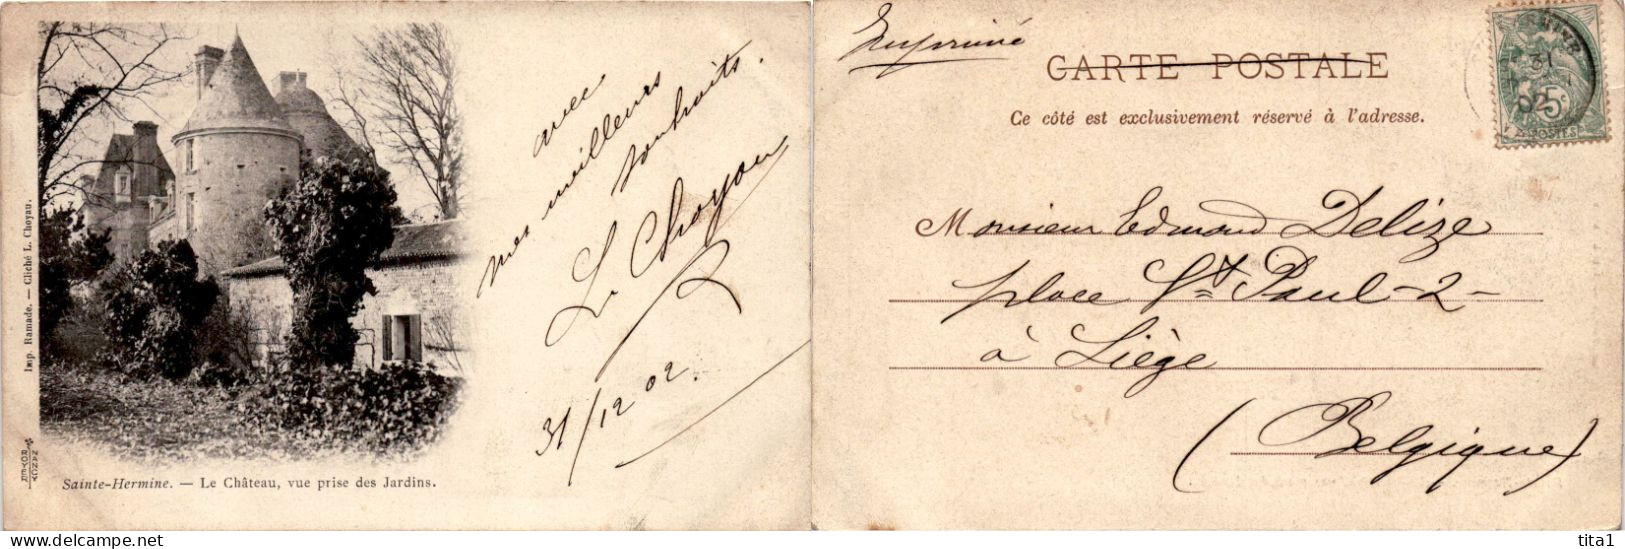 Imp. Ramade. — Cliché L. Choyau.
ROYER
NANCY
Sainte-Hermine. — Le Château, vue prise des Jardins.
avec
mes meilleurs
souhaits.
L. Choyau
31/12 02.
Imprimé
CARTE POSTALE
Ce côté est exclusivement réservé à l'adresse.
31
02
5c
POSTES
Monsieur Edmond Delize
place St Paul - 2 -
à Liège
(Belgique)
tita1